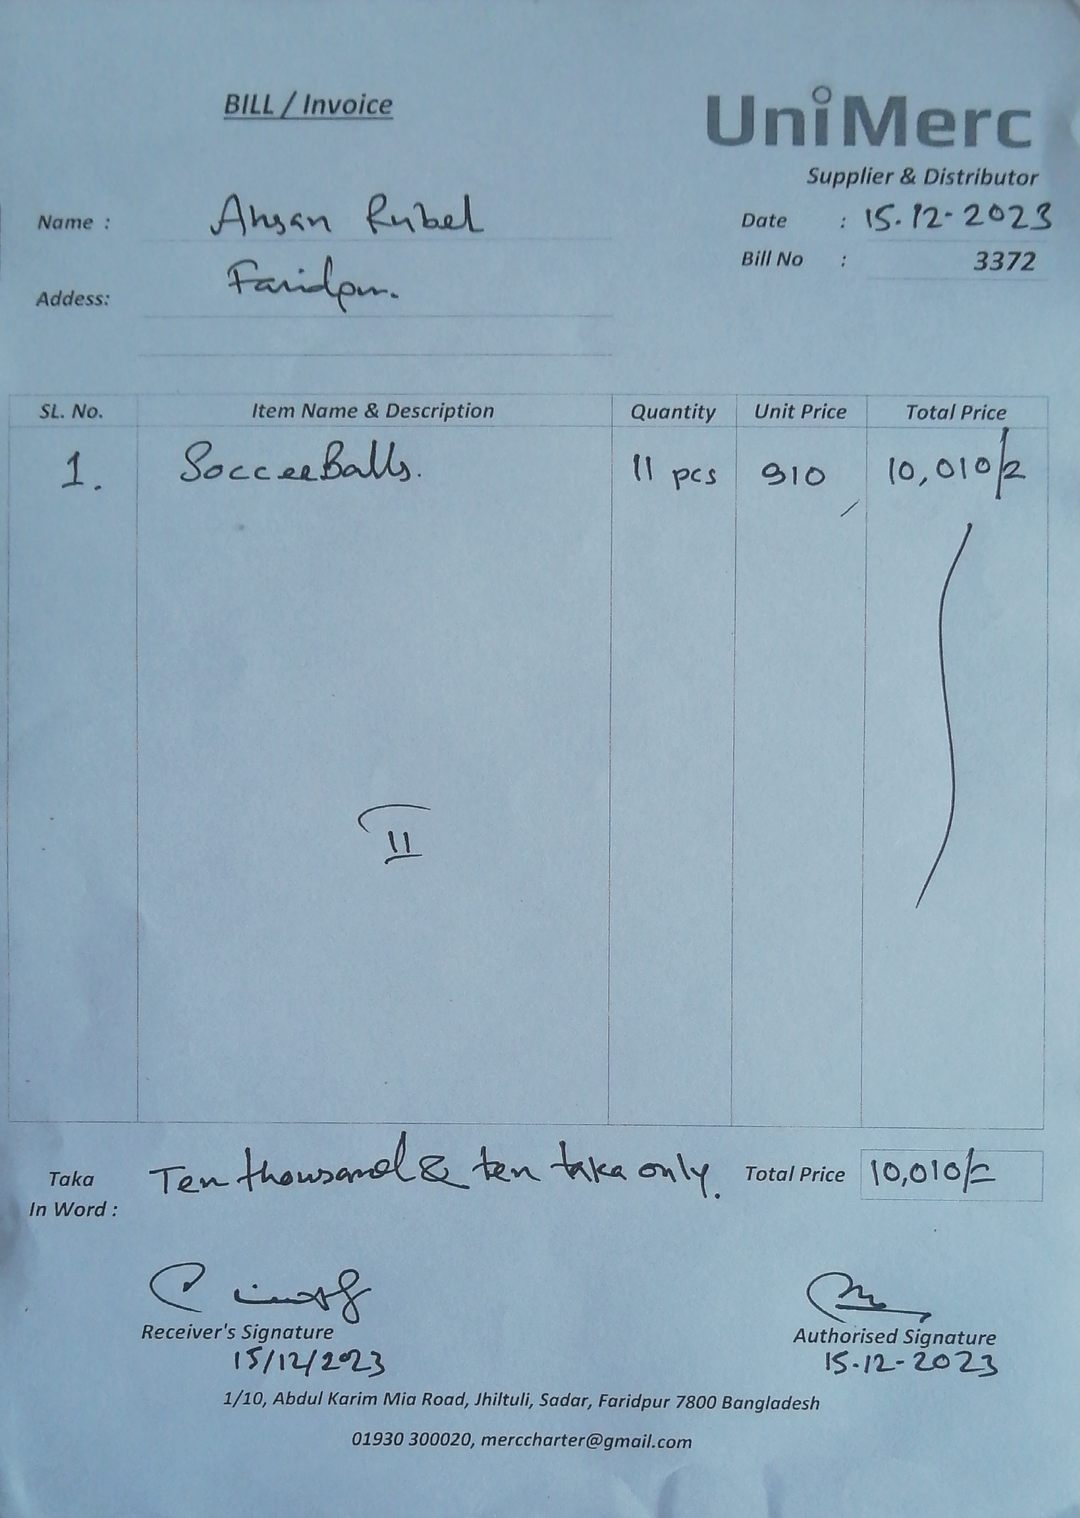 BILL / Invoice
UniMerc
Supplier & Distributor
Name : Ahsan Rubel
Date : 15.12-2023
Addess: Faridpur.
Bill No : 3372
SL. No. Item Name & Description Quantity Unit Price Total Price
1. Soccer Balls. 11 pcs 910 10,010/=
11
Taka In Word : Ten thousand & ten taka only. Total Price 10,010/=
Receiver's Signature Authorised Signature
15/12/2023 15.12-2023
1/10, Abdul Karim Mia Road, Jhiltuli, Sadar, Faridpur 7800 Bangladesh
01930 300020, merccharter@gmail.com